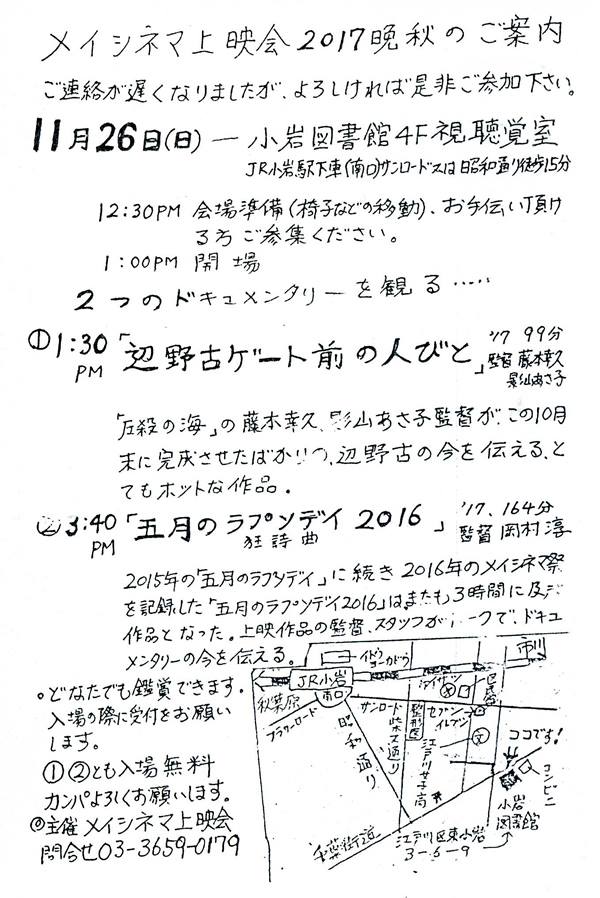 メイシネマ上映会2017晩秋のご案内
ご連絡が遅くなりましたが、よろしければ是非ご参加下さい。
11月26日(日)ー小岩図書館4F視聴覚室
JR小岩駅下車(南口)サンロード又は昭和通り徒歩15分
12:30PM 会場準備(椅子などの移動)、お手伝い頂け
る方ご参集ください。
1:00PM 開場
2つのドキュメンタリーを観る……
①1:30PM「辺野古ゲート前の人びと」'17 99分
監督 藤本幸久
影山あさ子
「圧殺の海」の藤本幸久、影山あさ子監督が、この10月
末に完成させたばかりの、辺野古の今を伝える、と
てもホットな作品。
②3:40PM「五月のラプソデイ 2016」'17、164分
狂詩曲
監督 岡村淳
2015年の「五月のラプソデイ」に続き2016年のメイシネマ祭
を記録した「五月のラプソデイ2016」はまたも3時間に及ぶ
作品となった。上映作品の監督、スタッフがトークで、ドキュ
メンタリーの今を伝える。
○どなたでも鑑賞できます。
入場の際に受付をお願い
します。
①②とも入場無料
カンパよろしくお願いします。
◎主催 メイシネマ上映会
問合せ03-3659-0179
イトーヨーカドウ
市川
JR小岩
南口
秋葉原
フラワーロード
昭和通り
サンロード
整形医
江戸川女子高
セブンイレブン
文
文
ココです!
コンビニ
小岩図書館
千葉街道
江戸川区東小岩
3-6-9